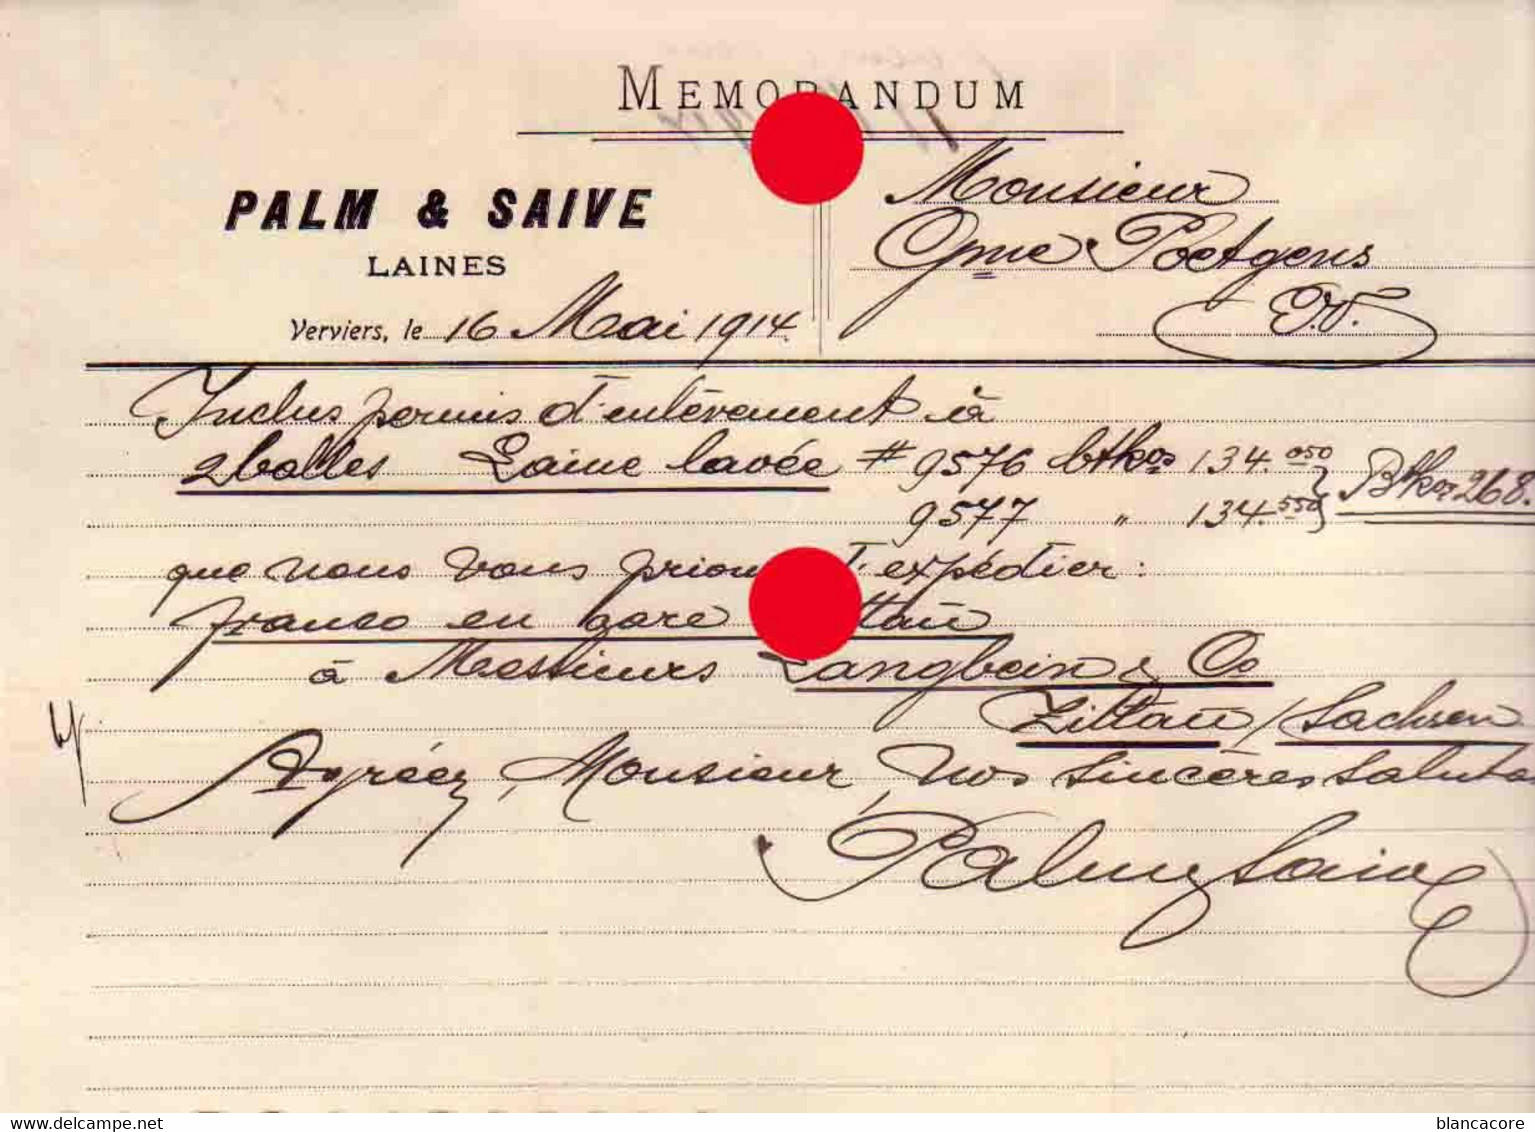 MEMORANDUM
PALM & SAIVE
LAINES
Verviers, le 16 Mai 1914
Monsieur
Poetgens
E.V.
Inclus permis d'enlèvement à
2 balles Laine lavée # 9576 btkos 134.050
9577 " 134.550
Btkos 268.
que nous vous d'expédier :
franco en gare
à Messieurs Langbein & Co
Zittau / Sachsen
Agréez, Monsieur, nos sincères saluta
Palm & Saive
blancacore